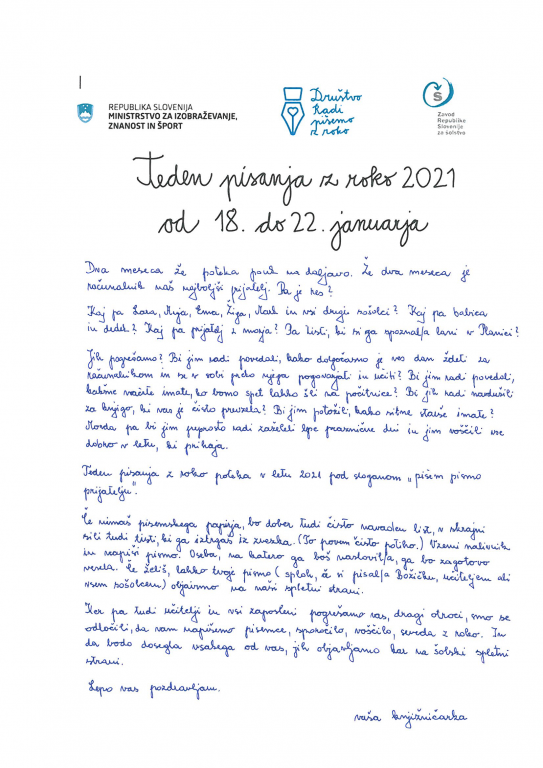 REPUBLIKA SLOVENIJA
MINISTRSTVO ZA IZOBRAŽEVANJE,
ZNANOST IN ŠPORT
Društvo
Radi
pišemo
z roko
Zavod
Republike
Slovenije
za šolstvo
Teden pisanja z roko 2021
od 18. do 22. januarja
Dva meseca že poteka pouk na daljavo. Že dva meseca je
računalnik naš najboljši prijatelj. Pa je res?
Kaj pa Lara, Anja, Ema, Žiga, Mark in vsi drugi sošolci? Kaj pa babica
in dedek? Kaj pa prijatelj z morja? Pa tisti, ki si ga spoznal/a lani v Planici?
Jih pogrešamo? Bi jim radi povedali, kako dolgočasno je ves dan ždeti za
računalnikom in se v sobi preko njega pogovarjati in učiti? Bi jim radi povedali,
kakšne načrte imate, ko bomo spet lahko šli na počitnice? Bi jih radi navdušili
za knjigo, ki vas je čisto prevzela? Bi jim potožili, kako sitne starše imate?
Morda pa bi jim preprosto radi zaželeli lepe praznične dni in jim voščili vse
dobro v letu, ki prihaja.
Teden pisanja z roko poteka v letu 2021 pod sloganom "pišem pismo
prijatelju".
Če nimaš pisemskega papirja, bo dober tudi čisto navaden list, v skrajni
sili tudi tisti, ki ga iztrgaš iz zvezka. (To povem čisto potiho.) Vzemi nalivnik
in napiši pismo. Oseba, na katero ga boš naslovil/a, ga bo zagotovo
vesela. Če želiš, lahko tvoje pismo (sploh, če si pisal/a Božičku, učiteljem ali
vsem sošolcem) objavimo na naši spletni strani.
Ker pa tudi učitelji in vsi zaposleni pogrešamo vas, dragi otroci, smo se
odločili, da vam napišemo pisemce, sporočilo, voščilo, seveda z roko. In
da bodo dosegla vsakega od vas, jih objavljamo kar na šolski spletni
strani.
Lepo vas pozdravljam.
vaša knjižničarka